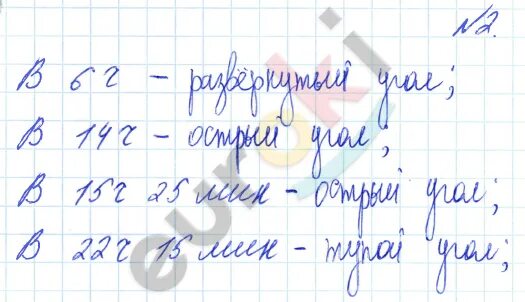 №2.
В 6ч – развёрнутый угол;
В 14ч – острый угол;
В 15ч 25 мин – острый угол;
В 22ч 15 мин – тупой угол;
euroki